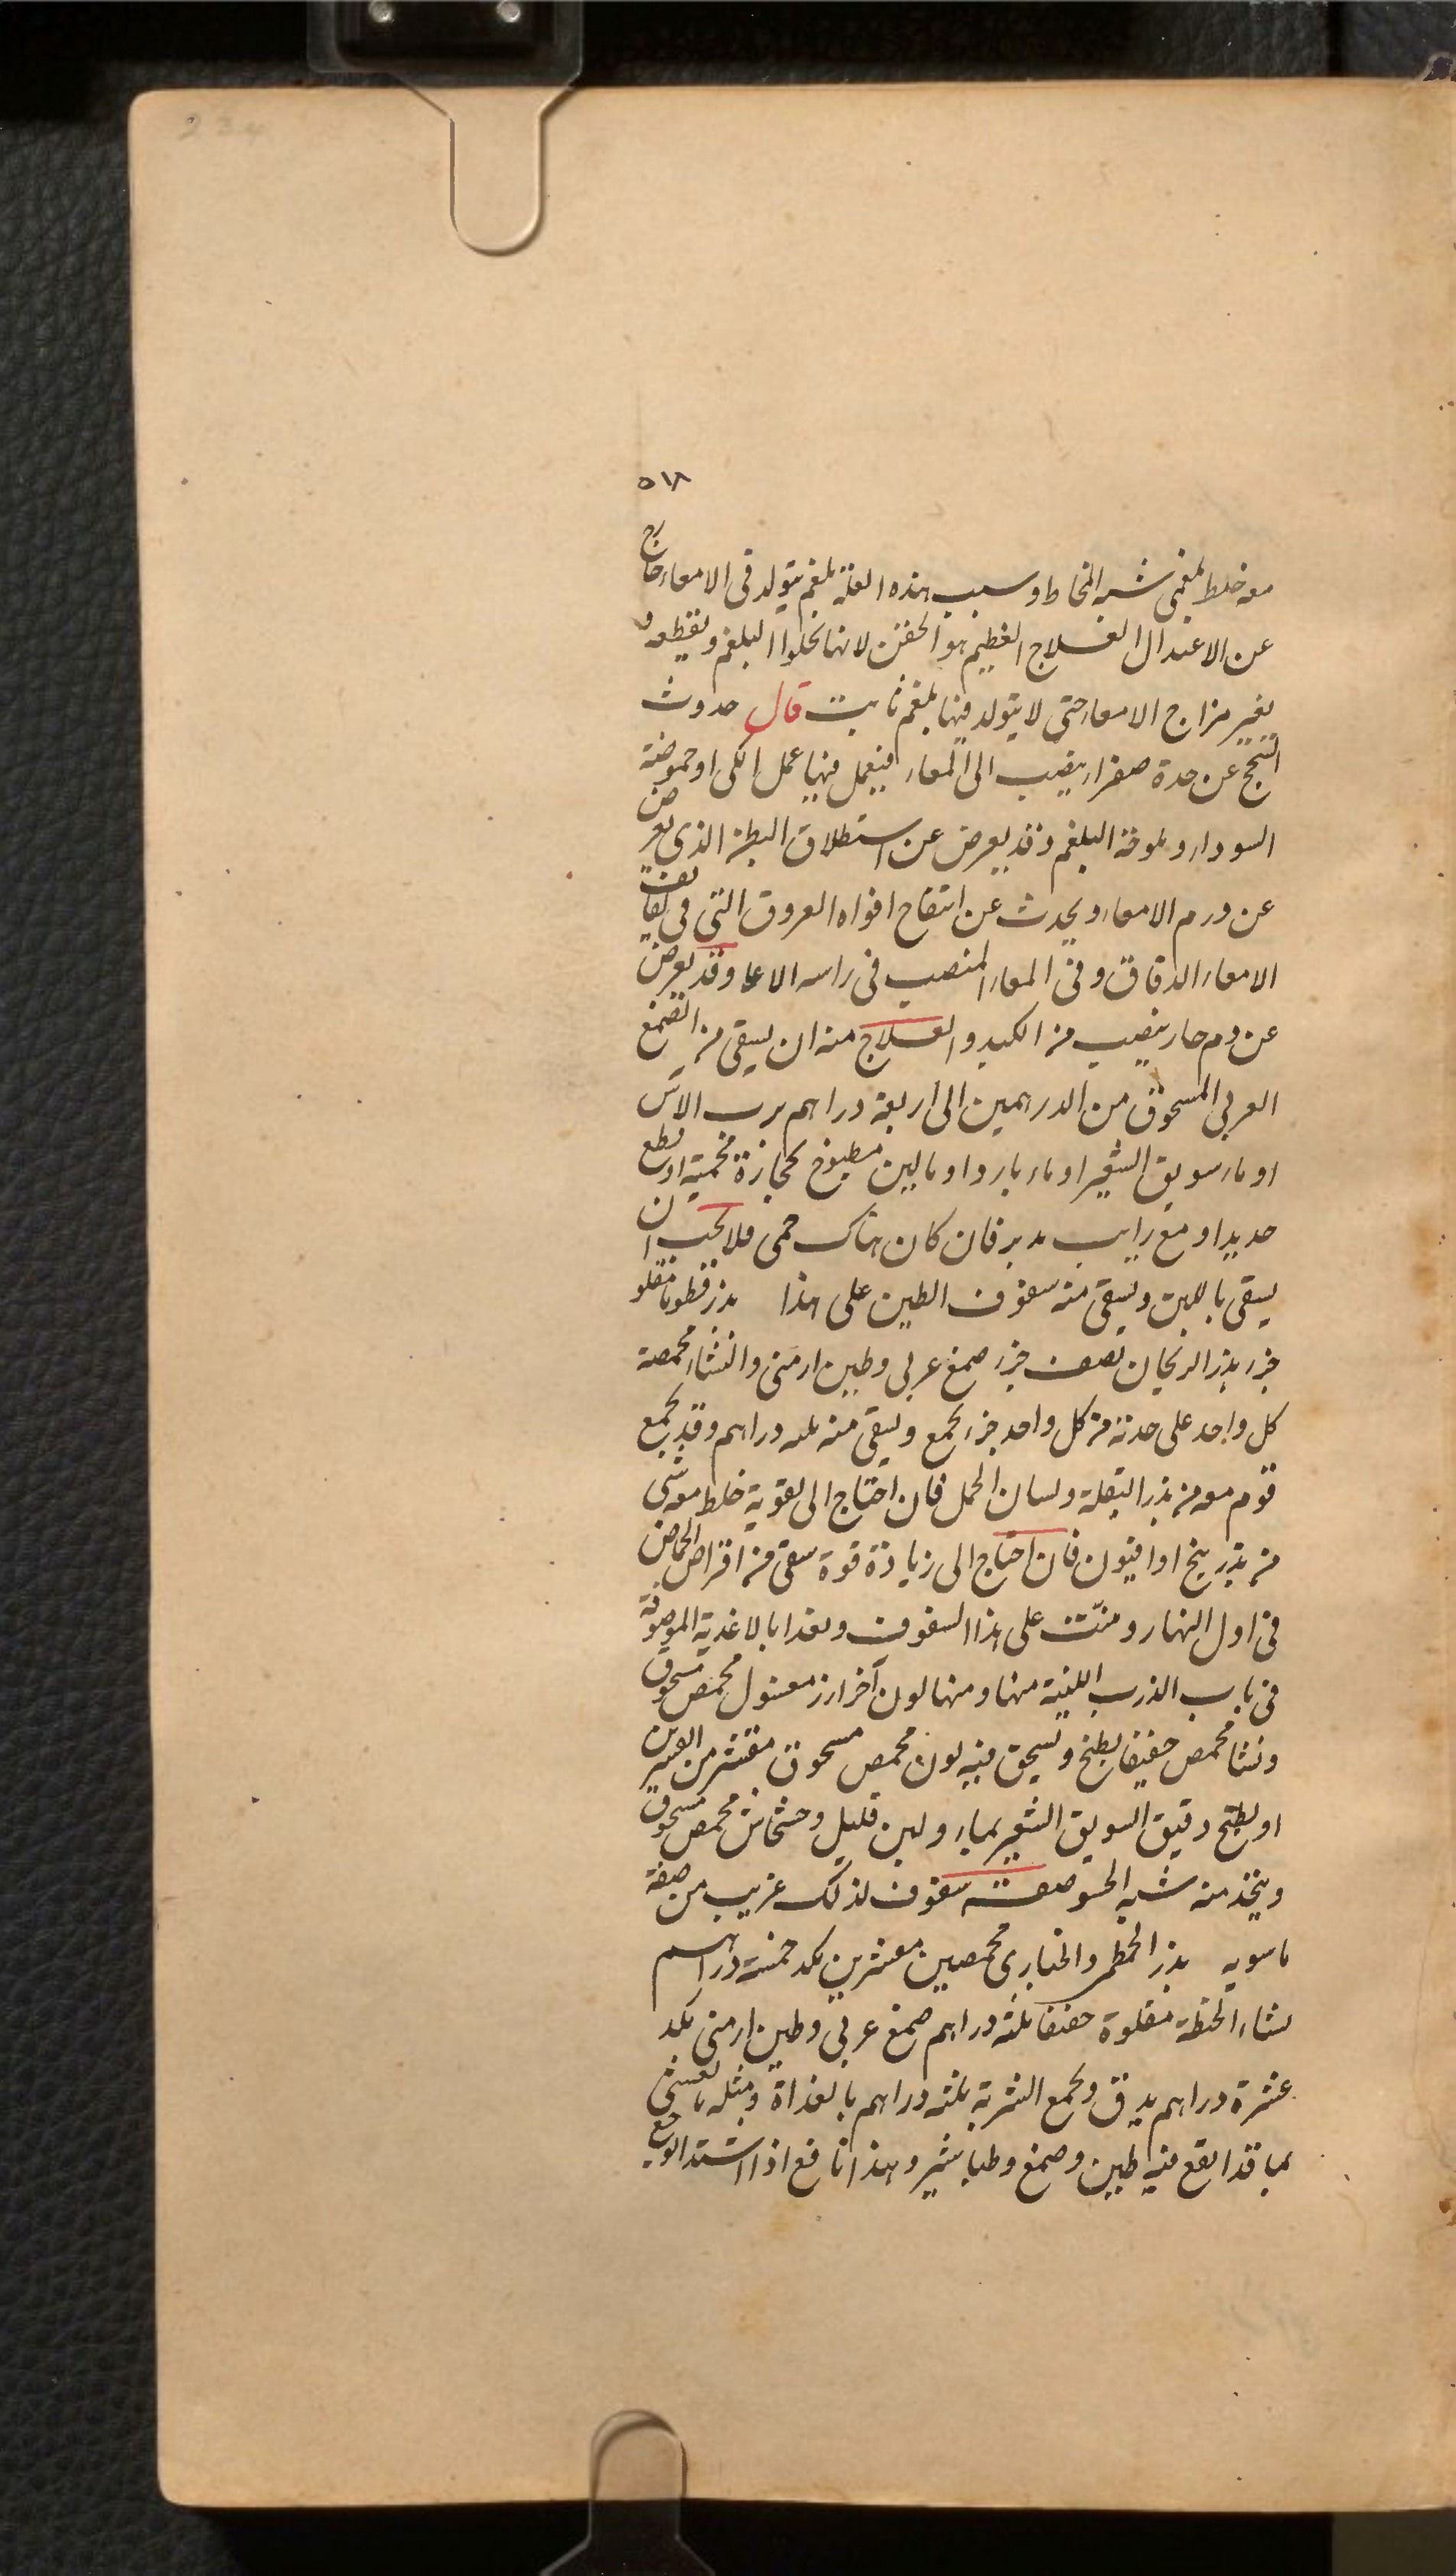 234
٥١٨
معه خلط بلغمى شبه المخاط وسبب هذه العلة بلغم يتولد فى الامعاء خارج
عن الاعتدال العلاج العظيم هو الحقن لانها تحلوا البلغم وتقطعه و
تغير مزاج الامعاء حتى لا يتولد فيها بلغم ثابت قال حدوث
السحج عن حدة صفراء ينصب الى المعاء فيعمل فيها عمل الكى او حموضة
السوداء وملوحة البلغم وقد يعرض عن استطلاق البطن الذى يعرض
عن ورم الامعاء ويحدث عن انتفاح افواه العروق التى فى لفايف
الامعاء الدقاق وفى المعاء المنصب فى راسه الاعا وقد يعرض
عن دم حار ينصب من الكبد والعلاج منه ان يسقى من الصمغ
العربى المسحوق من الدرهمين الى اربعة دراهم برب الاس
او ماء سويق الشعير او ماء بارد او بالبن مطبوخ بحجارة محمية او قطع
حديد او مع رايب مدبر فان كان هناك حمى فلا يجب ان
يسقى باللبن ويسقى منه سفوف الطين على هذا بذر قطونا مقلو
جزء بذر الريحان نصف جزء صمغ عربى وطين ارمنى والنشاء محمصة
كل واحد على حدته من كل واحد جزء يجمع ويسقى منه ثلثه دراهم وقد يجمع
قوم معه من بذر البقلة ولسان الحمل فان احتاج الى تقوية خلط معه شى
من بذر بنج او افيون فان احتاج الى زيادة قوة سقى من اقراص الحماض
فى اول النهار ومتت على هذا السفوف وتغدا بالاغذية الموصوفة
فى باب الذرب اللينة منها ومنها لون آخر ارز مغسول محمص مسحوق
ونشا محمص خفيفا يطبخ ويسحق فيه لون محمص مسحوق مقشر من القشرين
او يطبخ دقيق السويق الشعير بماء ولبن قليل وخشخاش محمص مسحوق
ويتخذ منه شبه الحسو صفة سفوف لذلك غريب من صفة
ماسويه بذر الخطمى والخبازى محمصين مقشرين بكد خمسة دراهم
نشاء الحنطة مقلوة خفيفا ثلثه دراهم صمغ عربى وطين ارمنى بكد
عشرة دراهم يدق ويجمع الشربة ثلثه دراهم بالغداة ومثله بالعشى
بما قد انقع فيه طين وصمغ وطباشير وهذا نافع اذا اشتد الوجع